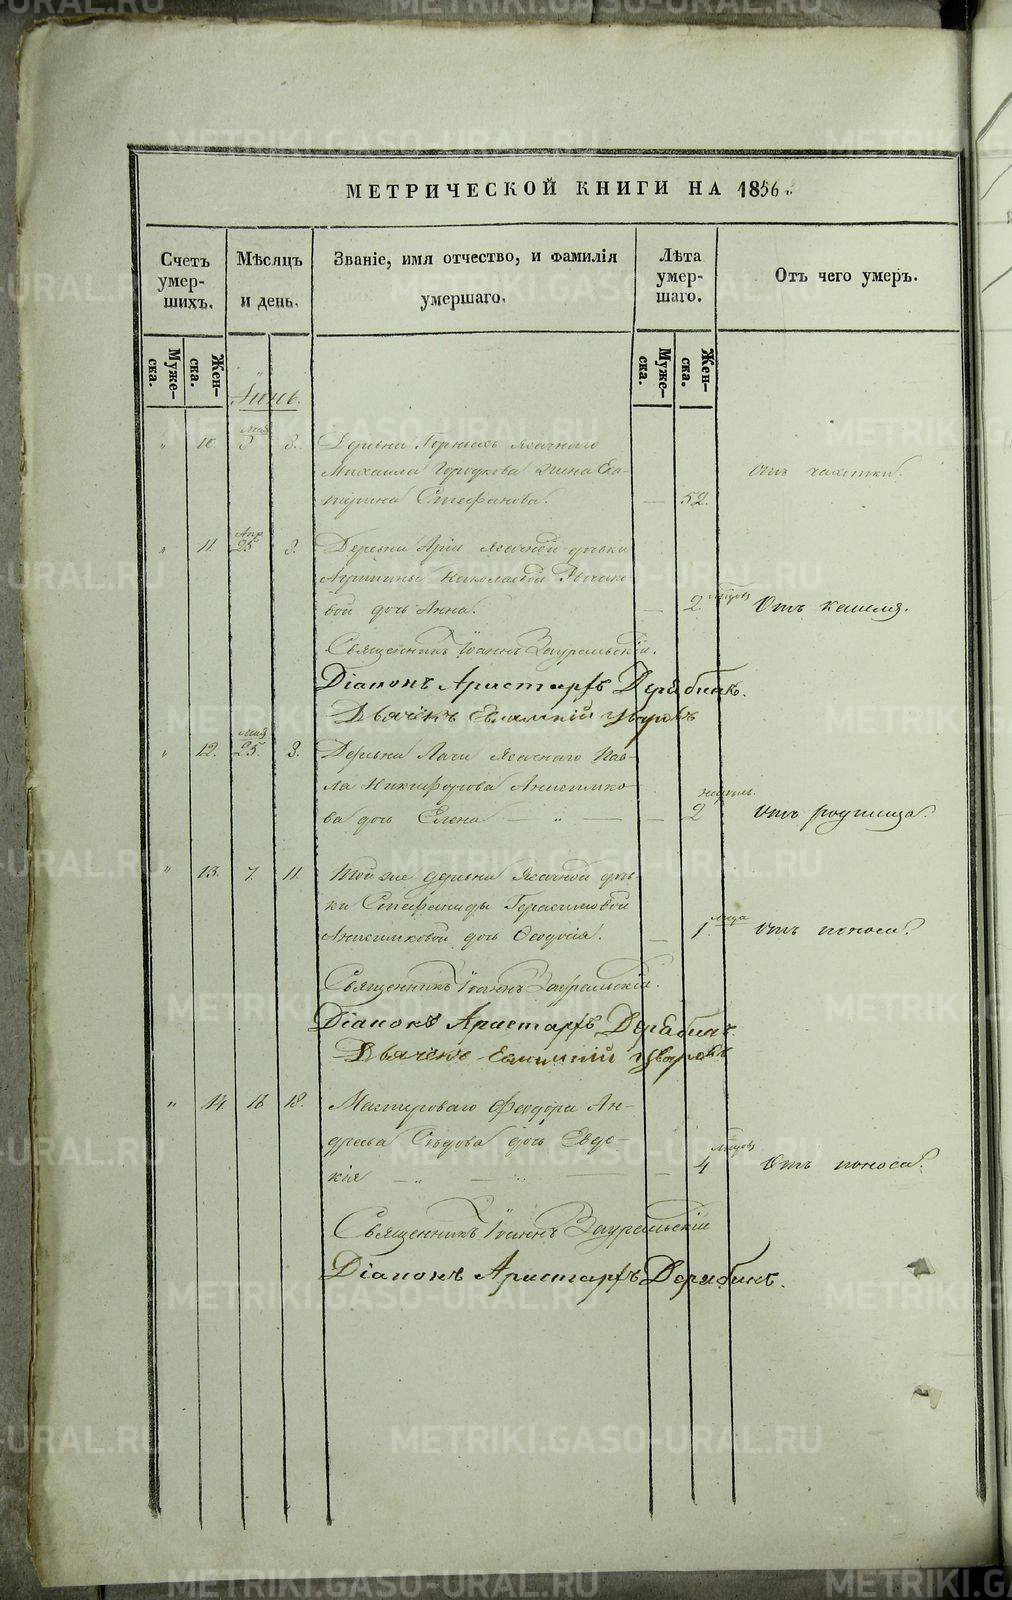 МЕТРИЧЕСКОЙ КНИГИ НА 1856 г.
Счетъ умер-шихъ.
Мѣсяцъ и день.
Званіе, имя отчество, и фамилія умершаго.
Лѣта умер-шаго.
Отъ чего умеръ.
Муже-ска.
Жен-ска.
Муже-ска.
Жен-ска.
Іюнь.
" 10. мая 3 3. Деревни Горныхъ ясачнаго
Михаила Городкова жена Ека-
терина Стефанова. — 52. отъ чахотки.
" 11. Апр 25 3. Деревни Арги ясачной дѣвки
Агрипины Николаевой
вой дочь Анна. — 2. мѣсяцъ Отъ кашля.
Священникъ Іоаннъ Зауральскій.
Діаконъ Аристархъ Дерябинъ.
Дьячекъ Евлампій
" 12. мая 25. 3. Деревни Лачи Ясачнаго Пав-
ла Никифорова Анисимко-
ва дочь Елена — " — — 2 недѣль. отъ родимца.
" 13. 7. 11. Той же деревни Ясачной дѣв-
ки Стефаниды Герасимовой
Анисимковой дочь Ѳеодосія. — 1. мѣца отъ поноса.
Священникъ Іоаннъ Зауральскій.
Діаконъ Аристархъ Дерябинъ.
Дьячекъ Евлампій
" 14. 16 18. Мастероваго Ѳеодора Ан-
дреева Сѣдова дочь Евдо-
кія — " — " — — 4 мѣсяцъ Отъ поноса.
Священникъ Іоаннъ Зауральскій
Діаконъ Аристархъ Дерябинъ.
METRIKI.GASO-URAL.RU